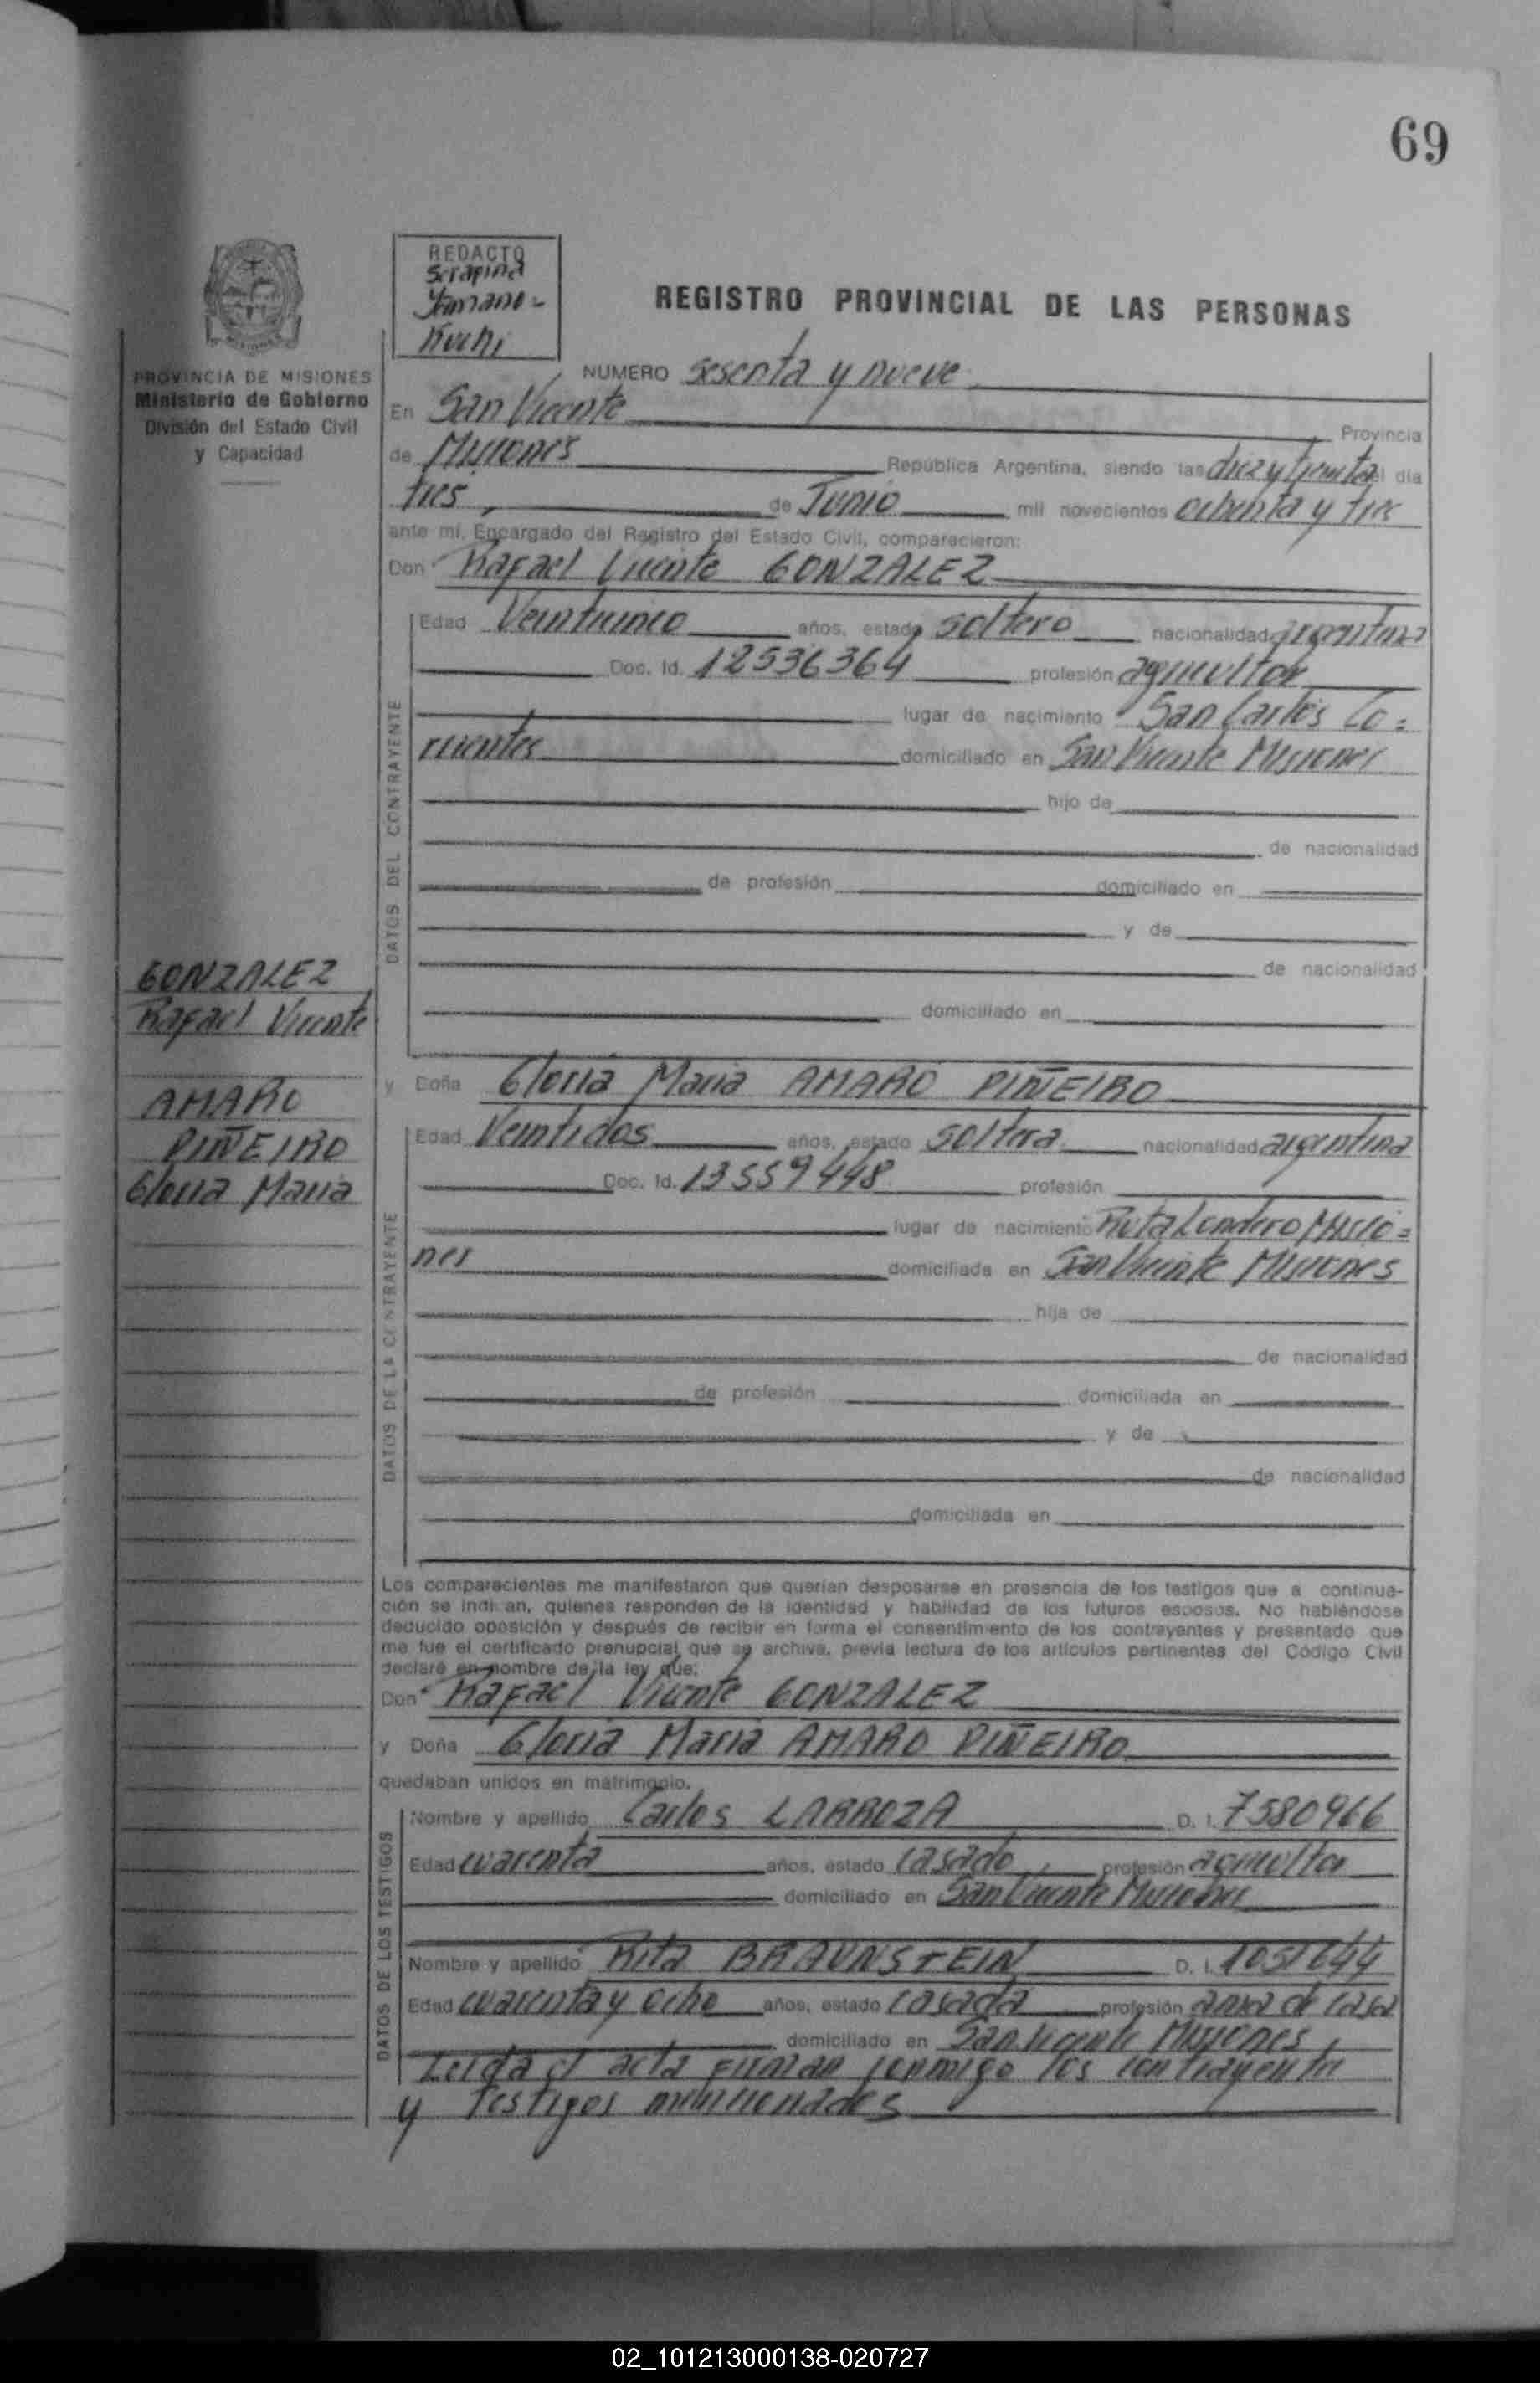 69
REDACTO
Serapina
Yamano-
Kuchi
REGISTRO PROVINCIAL DE LAS PERSONAS
PROVINCIA DE MISIONES
Ministerio de Gobierno
División del Estado Civil
y Capacidad
NUMERO sesenta y nueve
En San Vicente Provincia
de Misiones República Argentina, siendo las diez y treinta el día
tres, de Junio mil novecientos ochenta y tres
ante mí, Encargado del Registro del Estado Civil, comparecieron:
Don Rafael Vicente GONZALEZ
DATOS DEL CONTRAYENTE
Edad Veinticinco años, estado soltero nacionalidad argentina
Doc. Id. 12536364 profesión agricultor
lugar de nacimiento San Carlos Co=
rrientes domiciliado en San Vicente Misiones
hijo de
de nacionalidad
de profesión domiciliado en
y de
de nacionalidad
domiciliado en
GONZALEZ
Rafael Vicente
AMARO
PIÑEIRO
Gloria Maria
y Doña Gloria Maria AMARO PIÑEIRO
DATOS DE LA CONTRAYENTE
Edad Veintidos años, estado soltera nacionalidad argentina
Doc. Id. 13559448 profesión
lugar de nacimiento Misio=
nes domiciliada en San Vicente Misiones
hija de
de nacionalidad
de profesión domiciliada en
y de
de nacionalidad
domiciliada en
Los comparecientes me manifestaron que querían desposarse en presencia de los testigos que a continua-
ción se indi an, quienes responden de la identidad y habilidad de los futuros esposos. No habiéndose
deducido oposición y después de recibir en forma el consentimiento de los contrayentes y presentado que
me fue el certificado prenupcial que se archiva, previa lectura de los artículos pertinentes del Código Civil
declaré en nombre de la ley que:
Don Rafael Vicente GONZALEZ
y Doña Gloria Maria AMARO PIÑEIRO
quedaban unidos en matrimonio.
DATOS DE LOS TESTIGOS
Nombre y apellido Carlos LARROZA D. I. 7580966
Edad cuarenta años, estado casado, profesión agricultor
domiciliado en San Vicente Misiones
Nombre y apellido Rita BRAUNSTEIN D. I. 1031644
Edad cuarenta y ocho años, estado casada profesión ama de casa
domiciliado en San Vicente Misiones,
Leida el acta firman conmigo los contrayentes
y testigos mencionados
02_101213000138-020727